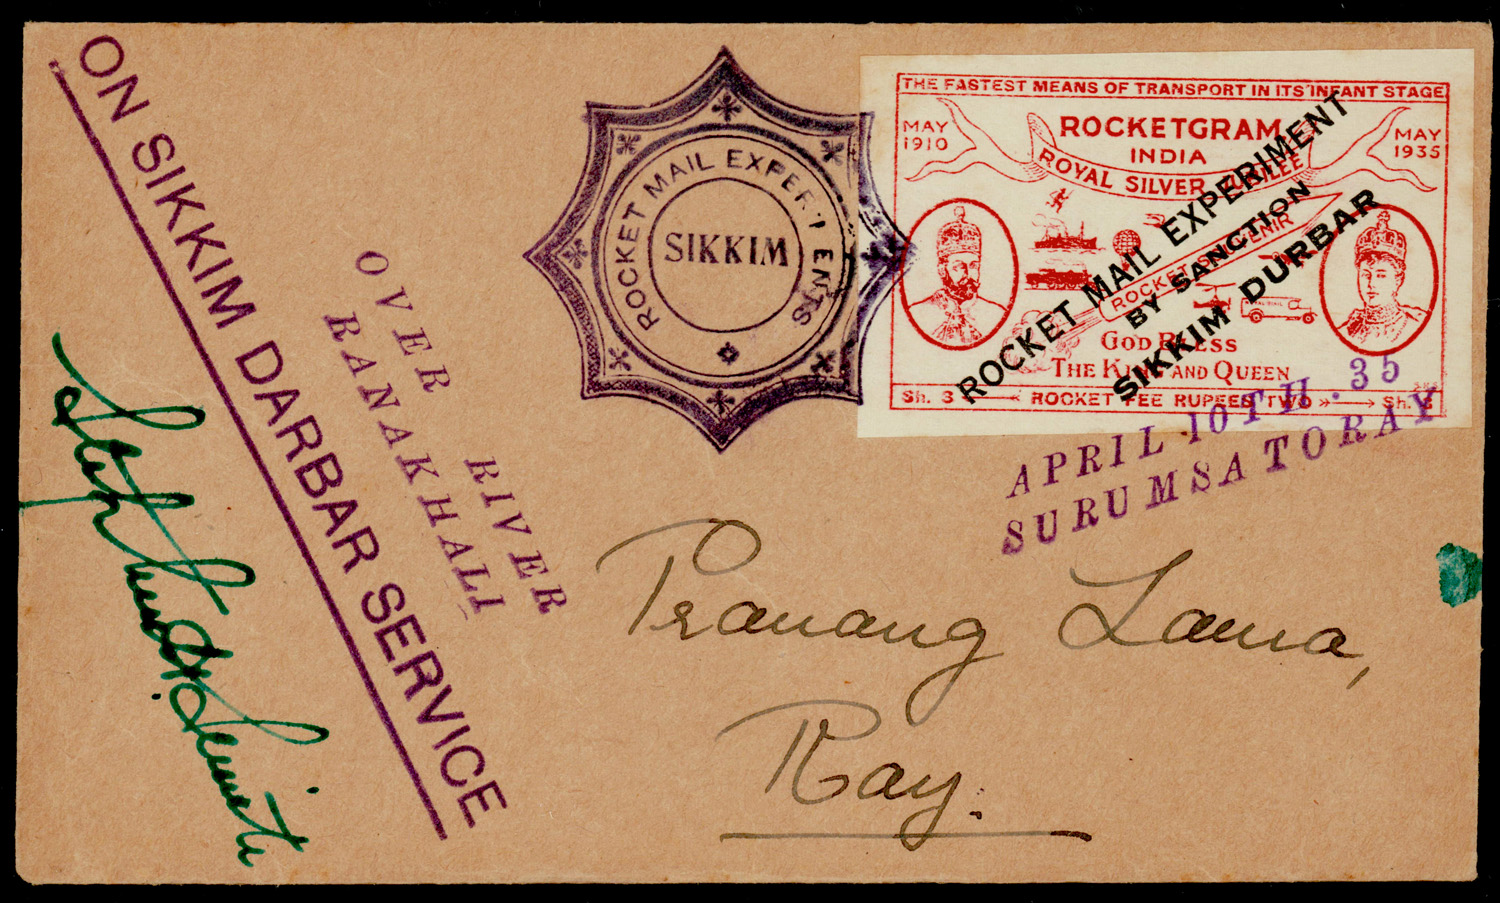 ON SIKKIM DARBAR SERVICE
OVER RIVER
RANAKHALI
ROCKET MAIL EXPERIMENTS
SIKKIM
THE FASTEST MEANS OF TRANSPORT IN ITS INFANT STAGE
MAY
1910
ROCKETGRAM
INDIA
ROYAL SILVER JUBILEE
MAY
1935
ROCKET SOUVENIR
GOD BLESS
THE KING AND QUEEN
Sh. 3 ROCKET FEE RUPEES TWO Sh. 3
ROCKET MAIL EXPERIMENT
BY SANCTION
SIKKIM DURBAR
APRIL 10TH. 35
SURUMSA TO RAY
Stephen H. Smith
Pranang Lama,
Ray.